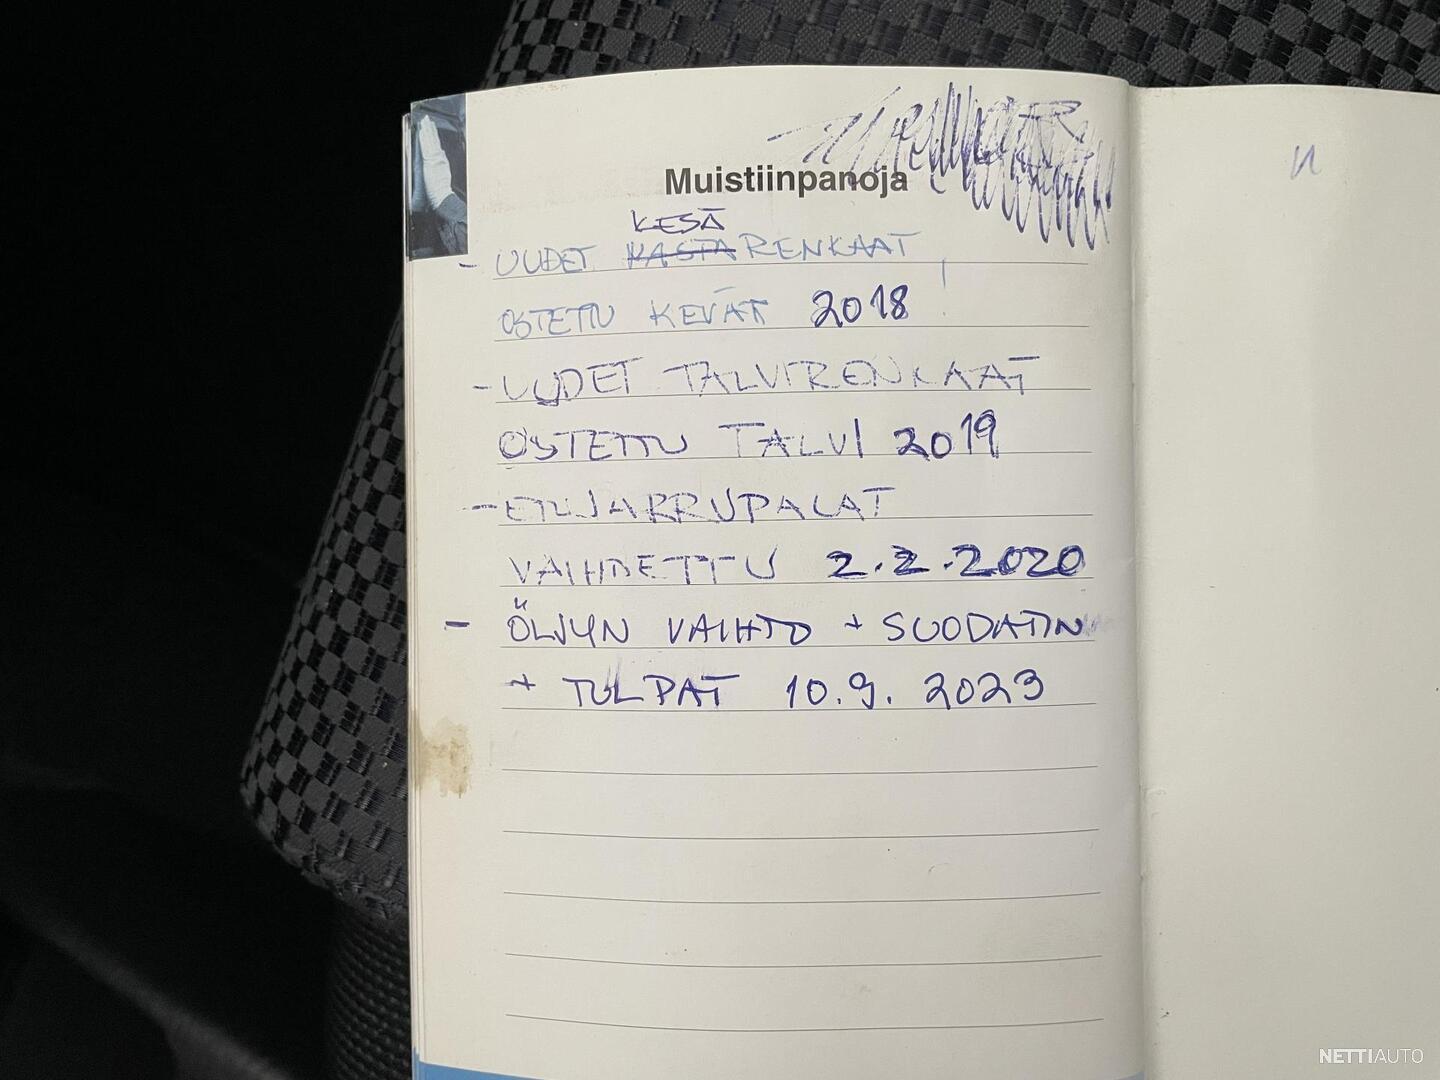 Muistiinpanoja
KESÄ
- UUDET KASTARENKAAT
OSTETTU KEVÄT 2018
- UUDET TALVIRENKAAT
OSTETTU TALVI 2019
- ETUJARRUPALAT
VAIHDETTU 2.2.2020
- ÖLJYN VAIHTO + SUODATIN
+ TULPAT 10.9.2023
NETTIAUTO